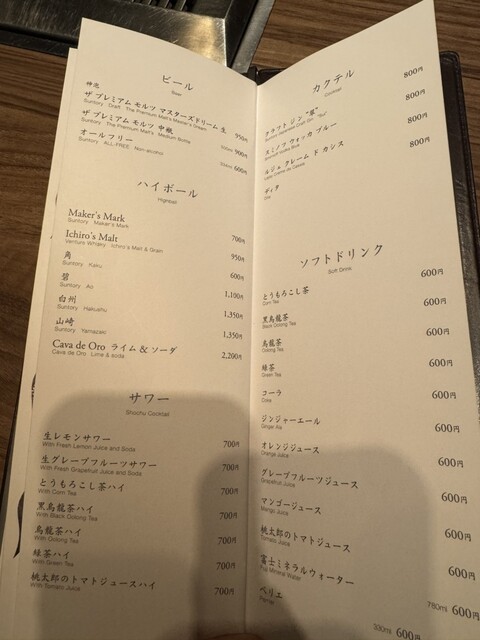 ビール
Beer
神泡
ザ プレミアム モルツ マスターズドリーム 生 950円
Suntory Draft The Premium Malt's Master's Dream
ザ プレミアム モルツ 中瓶 500ml 900円
Suntory The Premium Malt's Medium Bottle
オールフリー 600円
Suntory ALL-FREE Non-alcohol
ハイボール
Highball
Maker's Mark 700円
Suntory Maker's Mark
Ichiro's Malt 950円
Venture Whisky Ichiro's Malt & Grain
角 600円
Suntory Kaku
碧 1,100円
Suntory Ao
白州 1,350円
Suntory Hakushu
山崎 1,350円
Suntory Yamazaki
Cava de Oro ライム & ソーダ 2,200円
Cava de Oro Lime & soda
サワー
Shochu Cocktail
生レモンサワー 700円
With Fresh Lemon Juice and Soda
生グレープフルーツサワー 700円
With Fresh Grapefruit Juice and Soda
とうもろこし茶ハイ 700円
With Corn Tea
黒烏龍茶ハイ 700円
With Black Oolong Tea
烏龍茶ハイ 700円
With Oolong Tea
緑茶ハイ 700円
With Green Tea
桃太郎のトマトジュースハイ 700円
With Tomato Juice
カクテル
Cocktail
クラフト ジン "翠" 800円
スミノフ ウォッカ ブルー 800円
Smirnoff Vodka Blue
ルジェ クレーム ド カシス 800円
Lejay Crème de Cassis
ディタ
Dita
ソフトドリンク
Soft Drink
とうもろこし茶 600円
Corn Tea
黒烏龍茶 600円
Black Oolong Tea
烏龍茶 600円
Oolong Tea
緑茶 600円
Green Tea
コーラ 600円
Coke
ジンジャーエール 600円
Ginger Ale
オレンジジュース 600円
Orange Juice
グレープフルーツジュース 600円
Grapefruit Juice
マンゴージュース 600円
Mango Juice
桃太郎のトマトジュース 600円
Tomato Juice
富士ミネラルウォーター 780ml 600円
Fuji Mineral Water
ペリエ 330ml 600円
Perrier